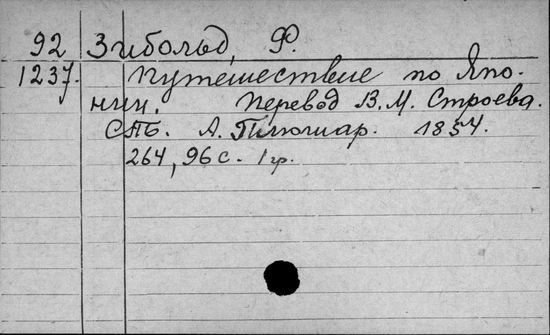 92 Зибольд, Ф.
1237. Путешествие по Япо-
нии. Перевод В. М. Строева.
СПб. А. Плюшар. 1854.
264, 96 с. 1 гр.